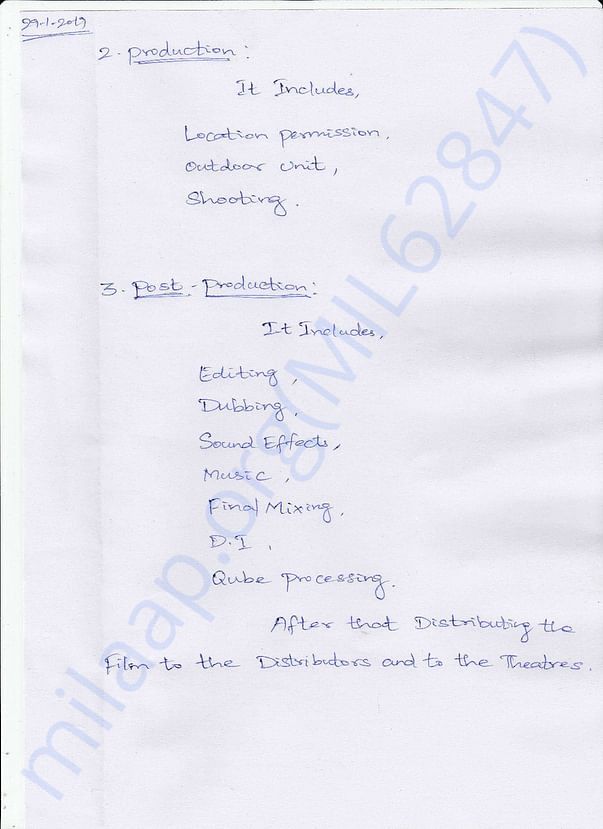 29-1-2019
2. Production:
It Includes,
Location permission,
Outdoor Unit,
Shooting.
3. Post-Production:
It Includes,
Editing,
Dubbing,
Sound Effects,
Music,
Final Mixing,
D.I,
Qube Processing.
After that Distributing the
Film to the Distributors and to the Theatres.
milaap.org(MIL62847)